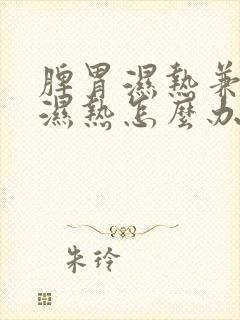 脾胃濕熱兼
濕熱怎麼办
朱玲